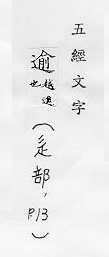 五經文字
逾越也
(辵部，P.13)